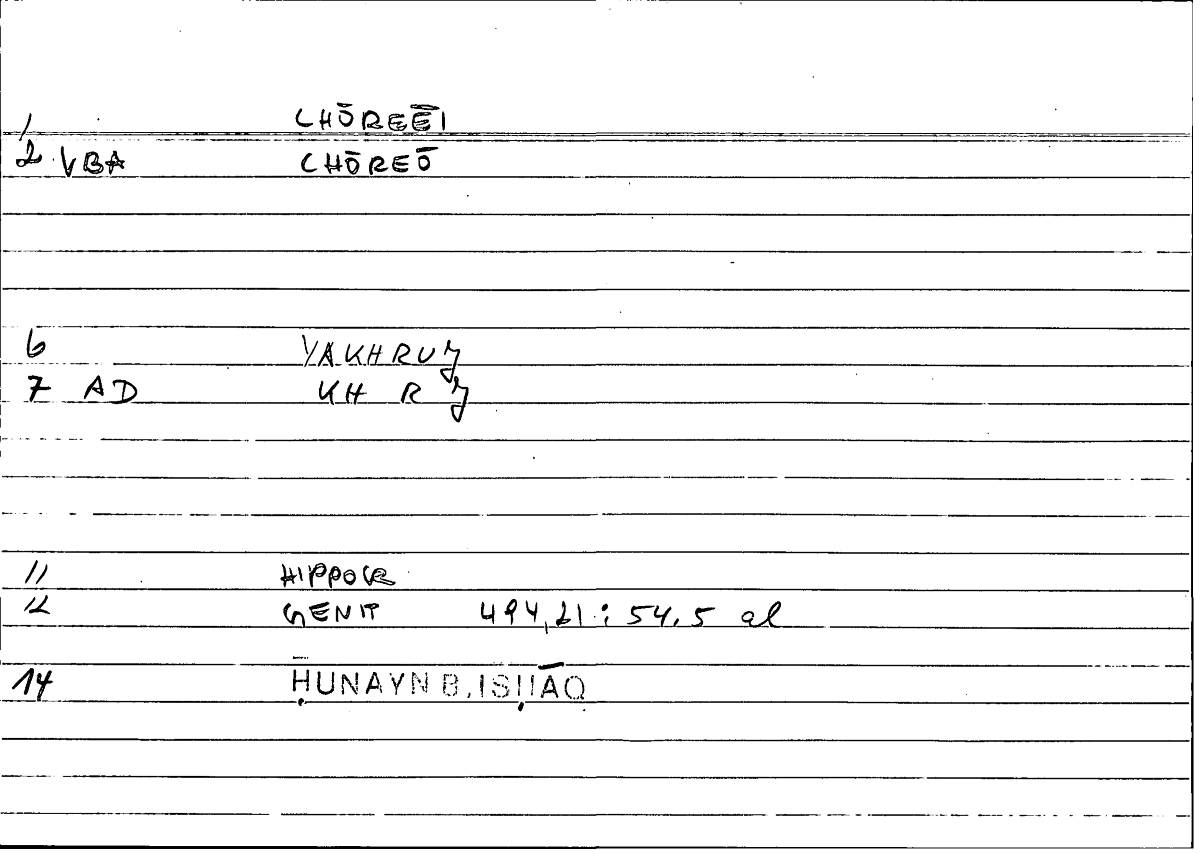 1 CHŌREĒI
2 VBA CHŌREŌ
6 YAKHRUJ
7 AD KH R J
11 HIPPOCR
12 GENIT 494,21 : 54.5 al
14 ḤUNAYN B. ISḤĀQ